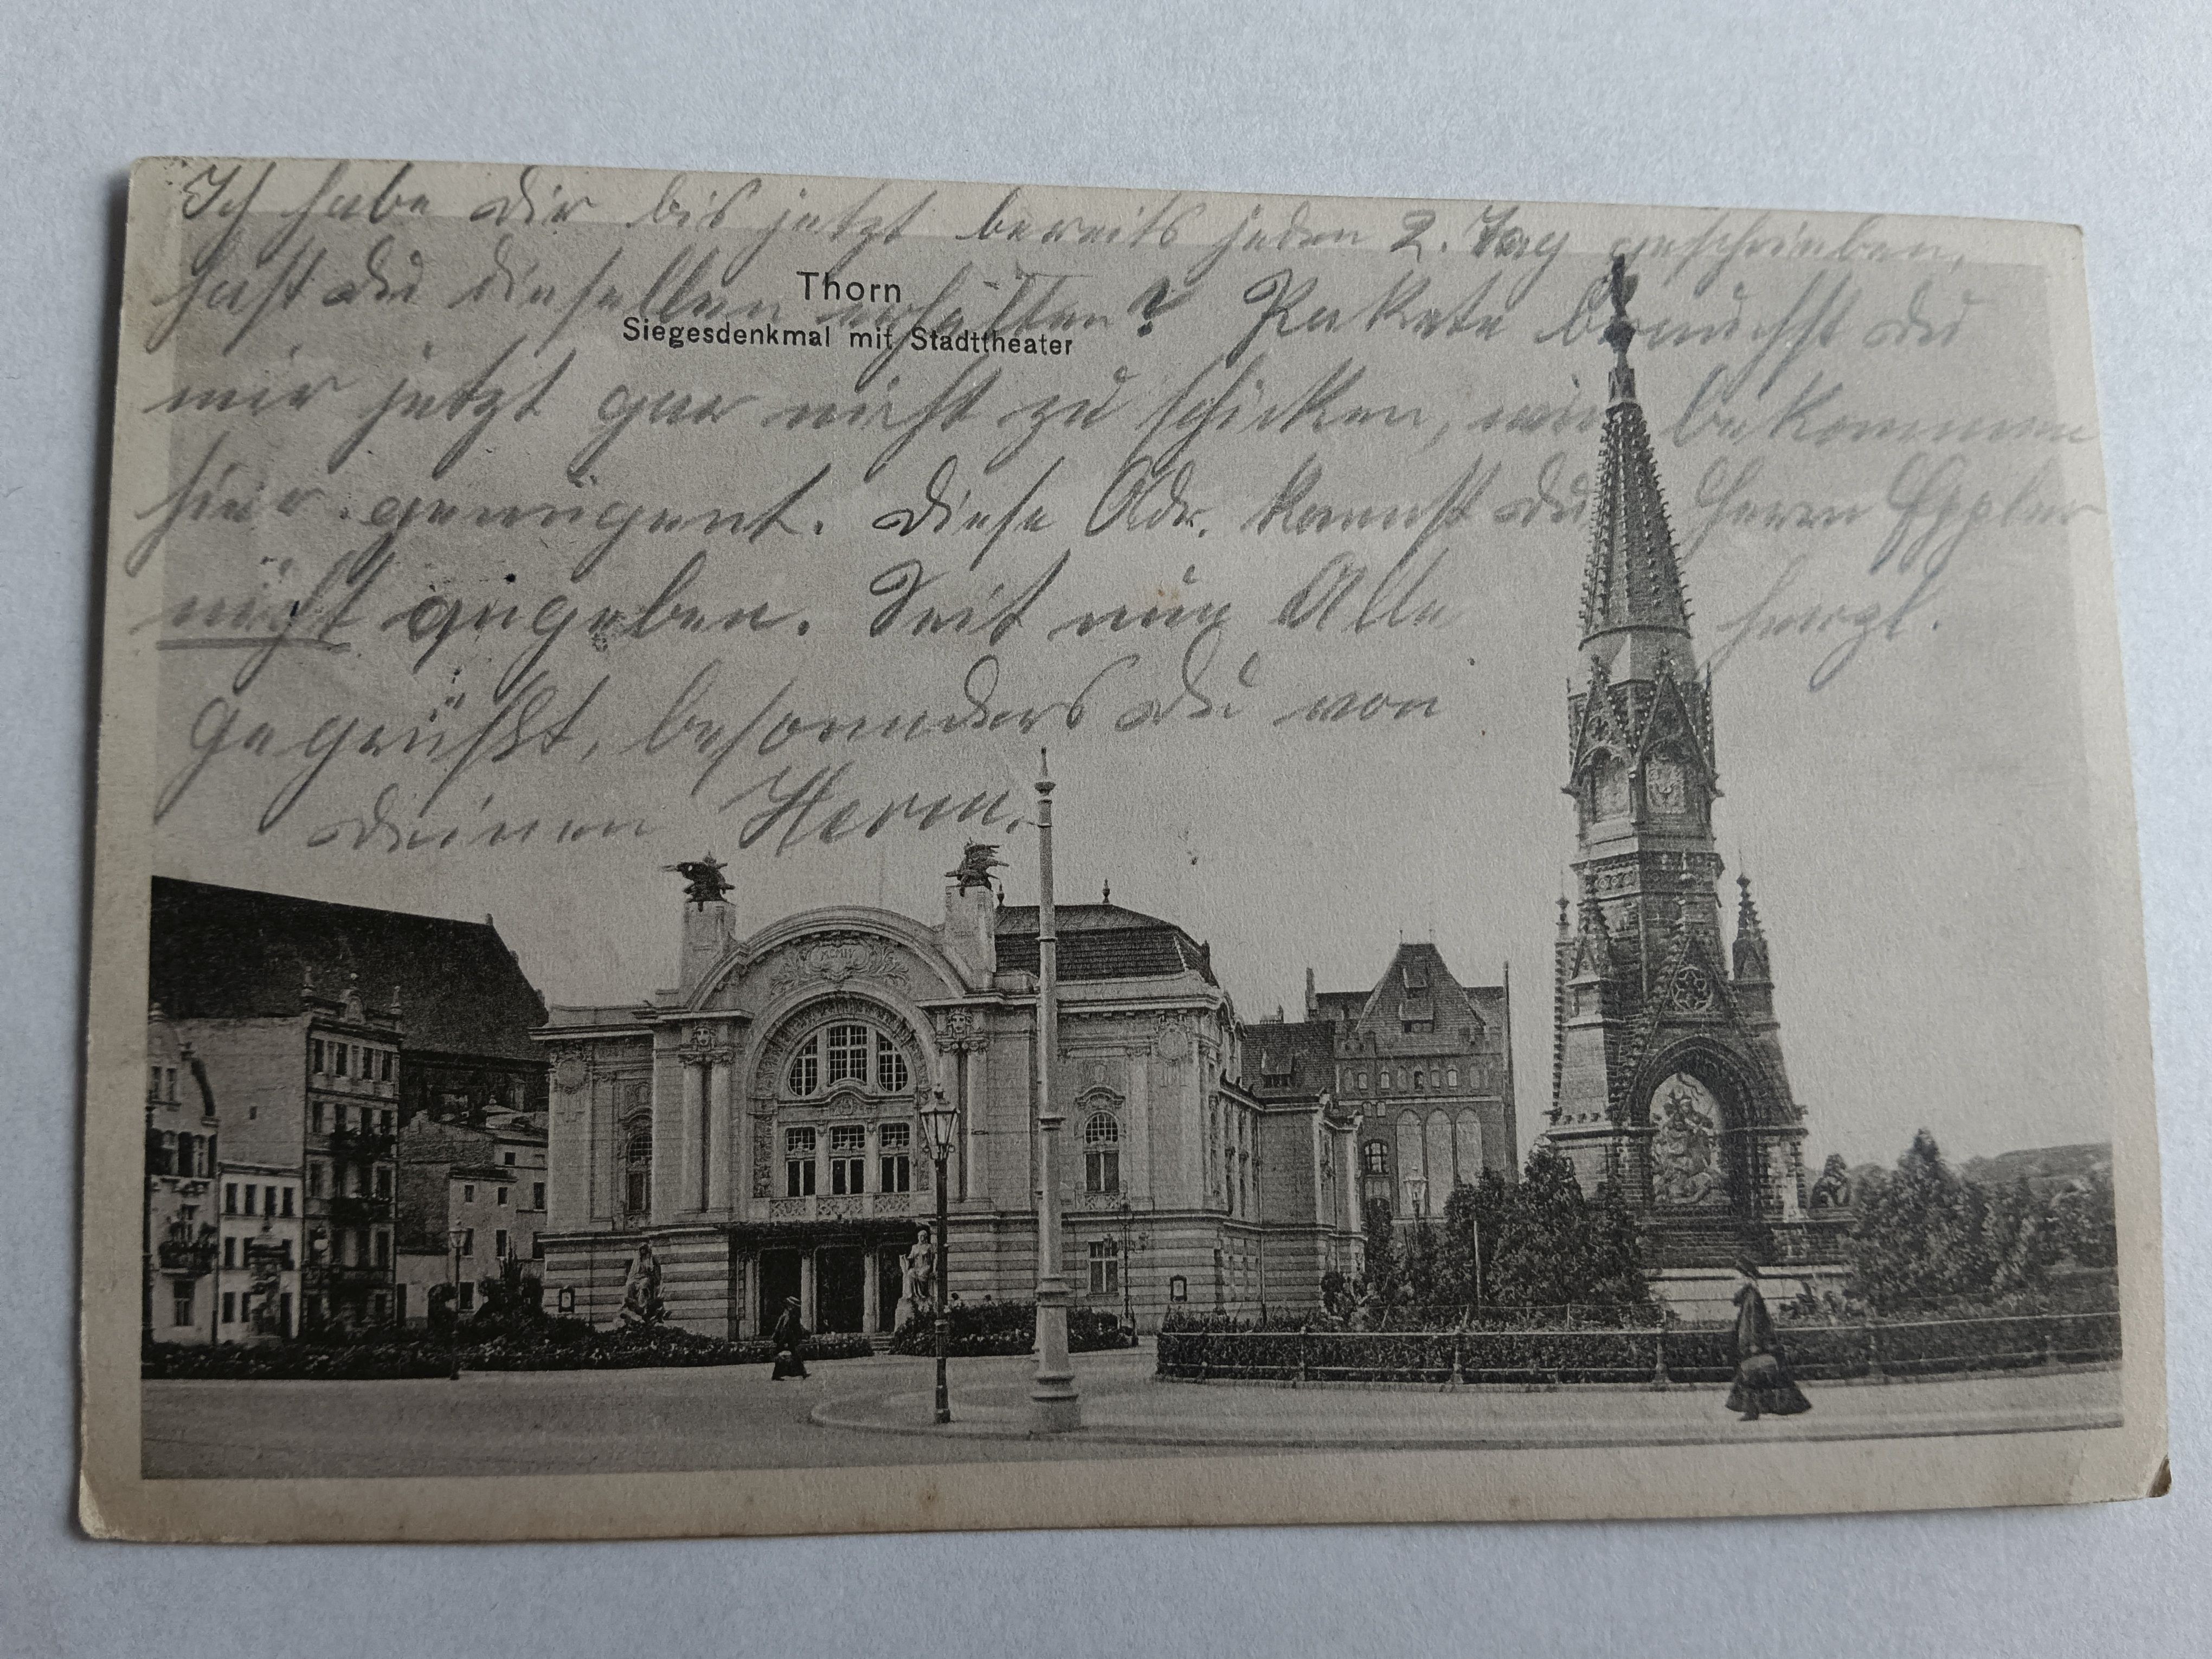 Ich habe dir bis jetzt bereits jeden 2. Tag geschrieben,
hast du dieselben erhalten? Pakete brauchst du
Thorn
Siegesdenkmal mit Stadttheater
mir jetzt gar nicht zu schicken, wir bekommen
hier genügent. Diese Adr. kannst du Herrn
nicht angeben. Seit nun Alle herzl.
gegrüßt, besonders du von
deinen Herm.